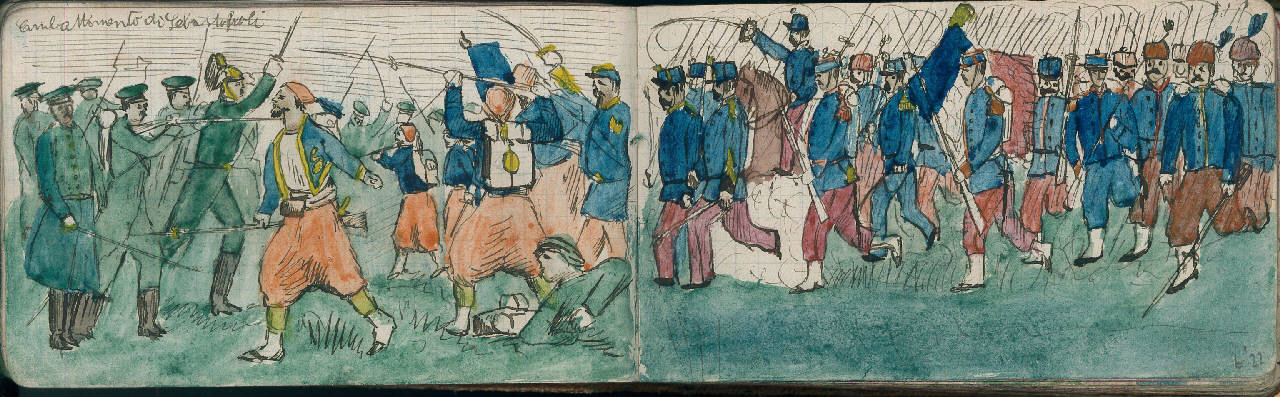 Combattimento di Sebastopoli
27